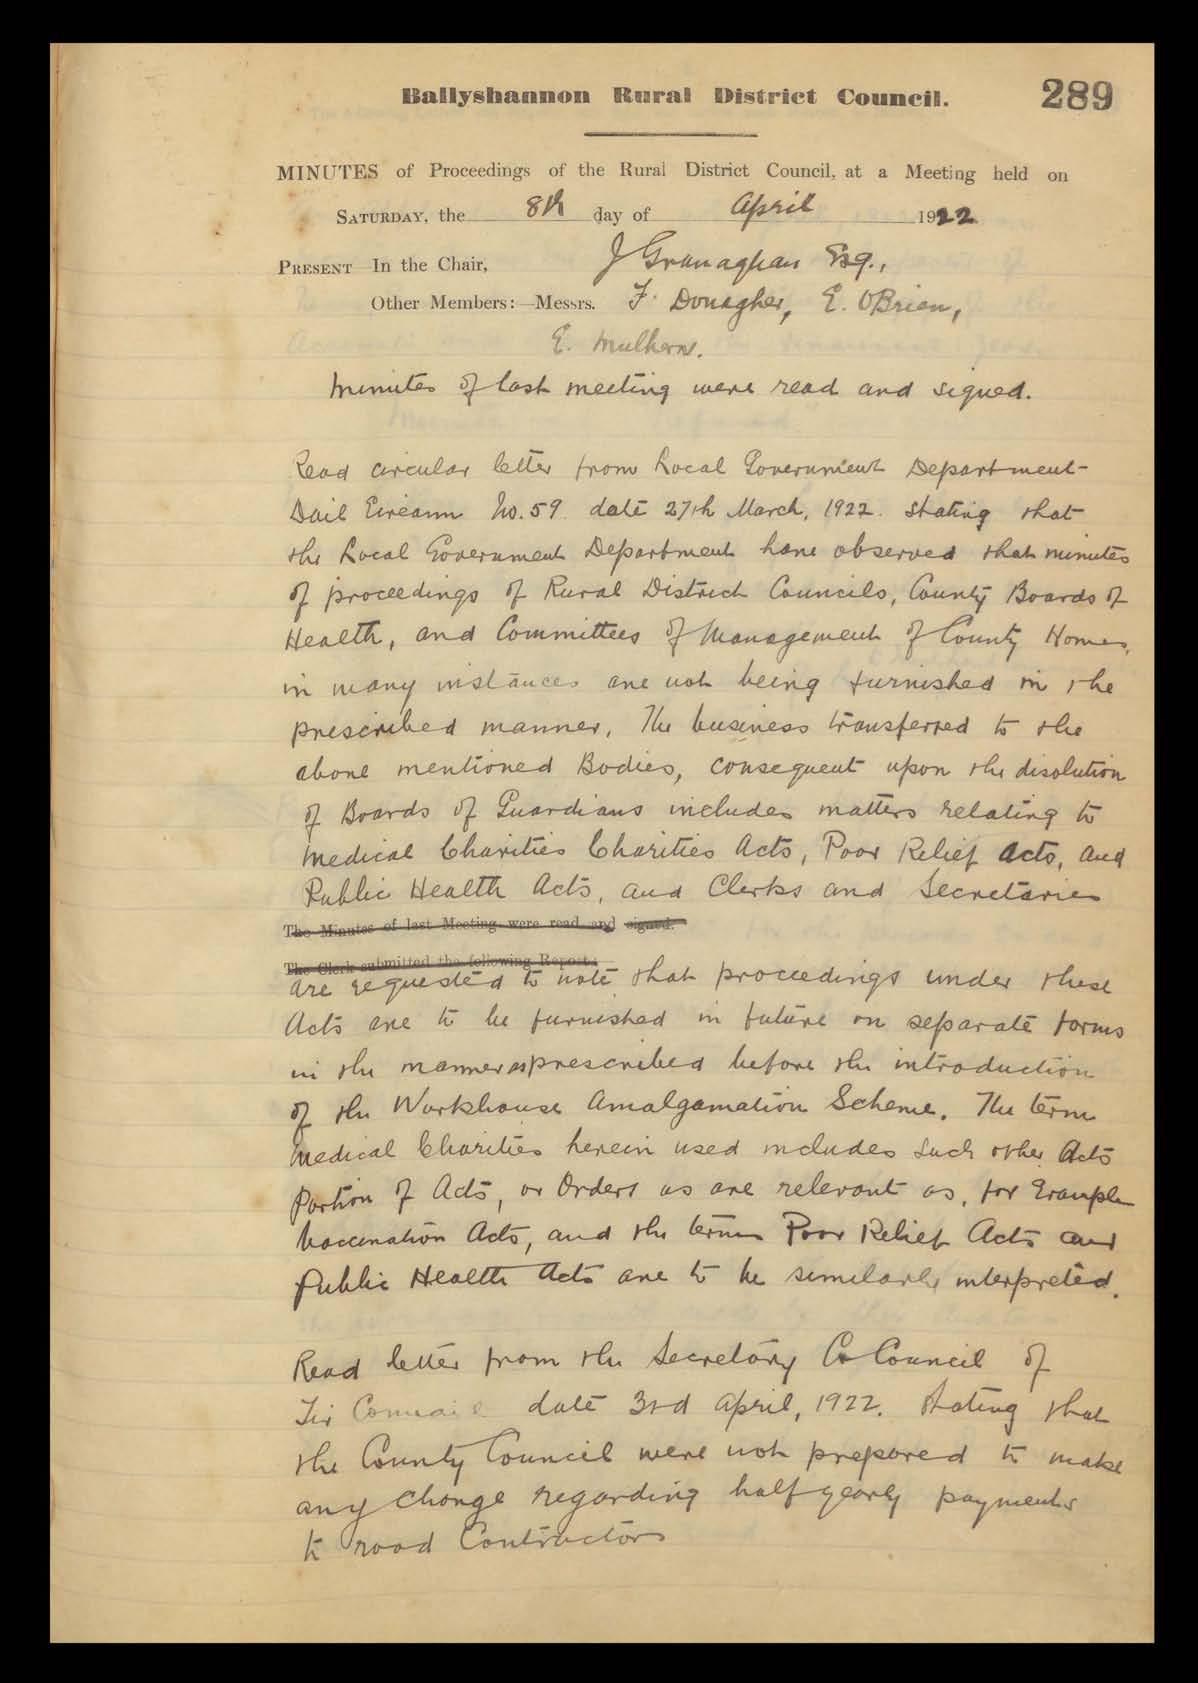 Ballyshannon Rural District Council. 289
MINUTES of Proceedings of the Rural District Council, at a Meeting held on
SATURDAY, the 8th day of April 1922
PRESENT In the Chair, J Granaghan Esq.,
Other Members:—Messrs. F. Donagher, E. OBrien,
E. Mulhern.
Minutes of last meeting were read and signed.
Read circular letter from Local Government Department
Dail Eireann No. 59 date 27th March, 1922. stating that
the Local Government Department have observed that minutes
of proceedings of Rural District Councils, County Boards of
Health, and Committees of Management of County Homes,
in many instances are not being furnished in the
prescribed manner, The business transferred to the
above mentioned Bodies, consequent upon the disolution
of Boards of Guardians includes matters relating to
Medical Charities Charities Acts, Poor Relief Acts, and
Public Health Acts, and Clerks and Secretaries
The Minutes of last Meeting were read and signed.
The Clerk submitted the following Report:
are requested to note that proceedings under these
Acts are to be furnished in future on separate forms
in the manner as prescribed before the introduction
of the Workhouse Amalgamation Scheme. The term
Medical Charities herein used includes such other Acts
portion of Acts, or Orders as are relevant as, for Example
Vaccination Acts, and the terms Poor Relief Acts and
Public Health Acts are to be similarly interpreted.
Read letter from the Secretary Co Council of
Tir Connaill date 3rd April, 1922. stating that
the County Council were not prepared to make
any change regarding half yearly payments
to road Contractors